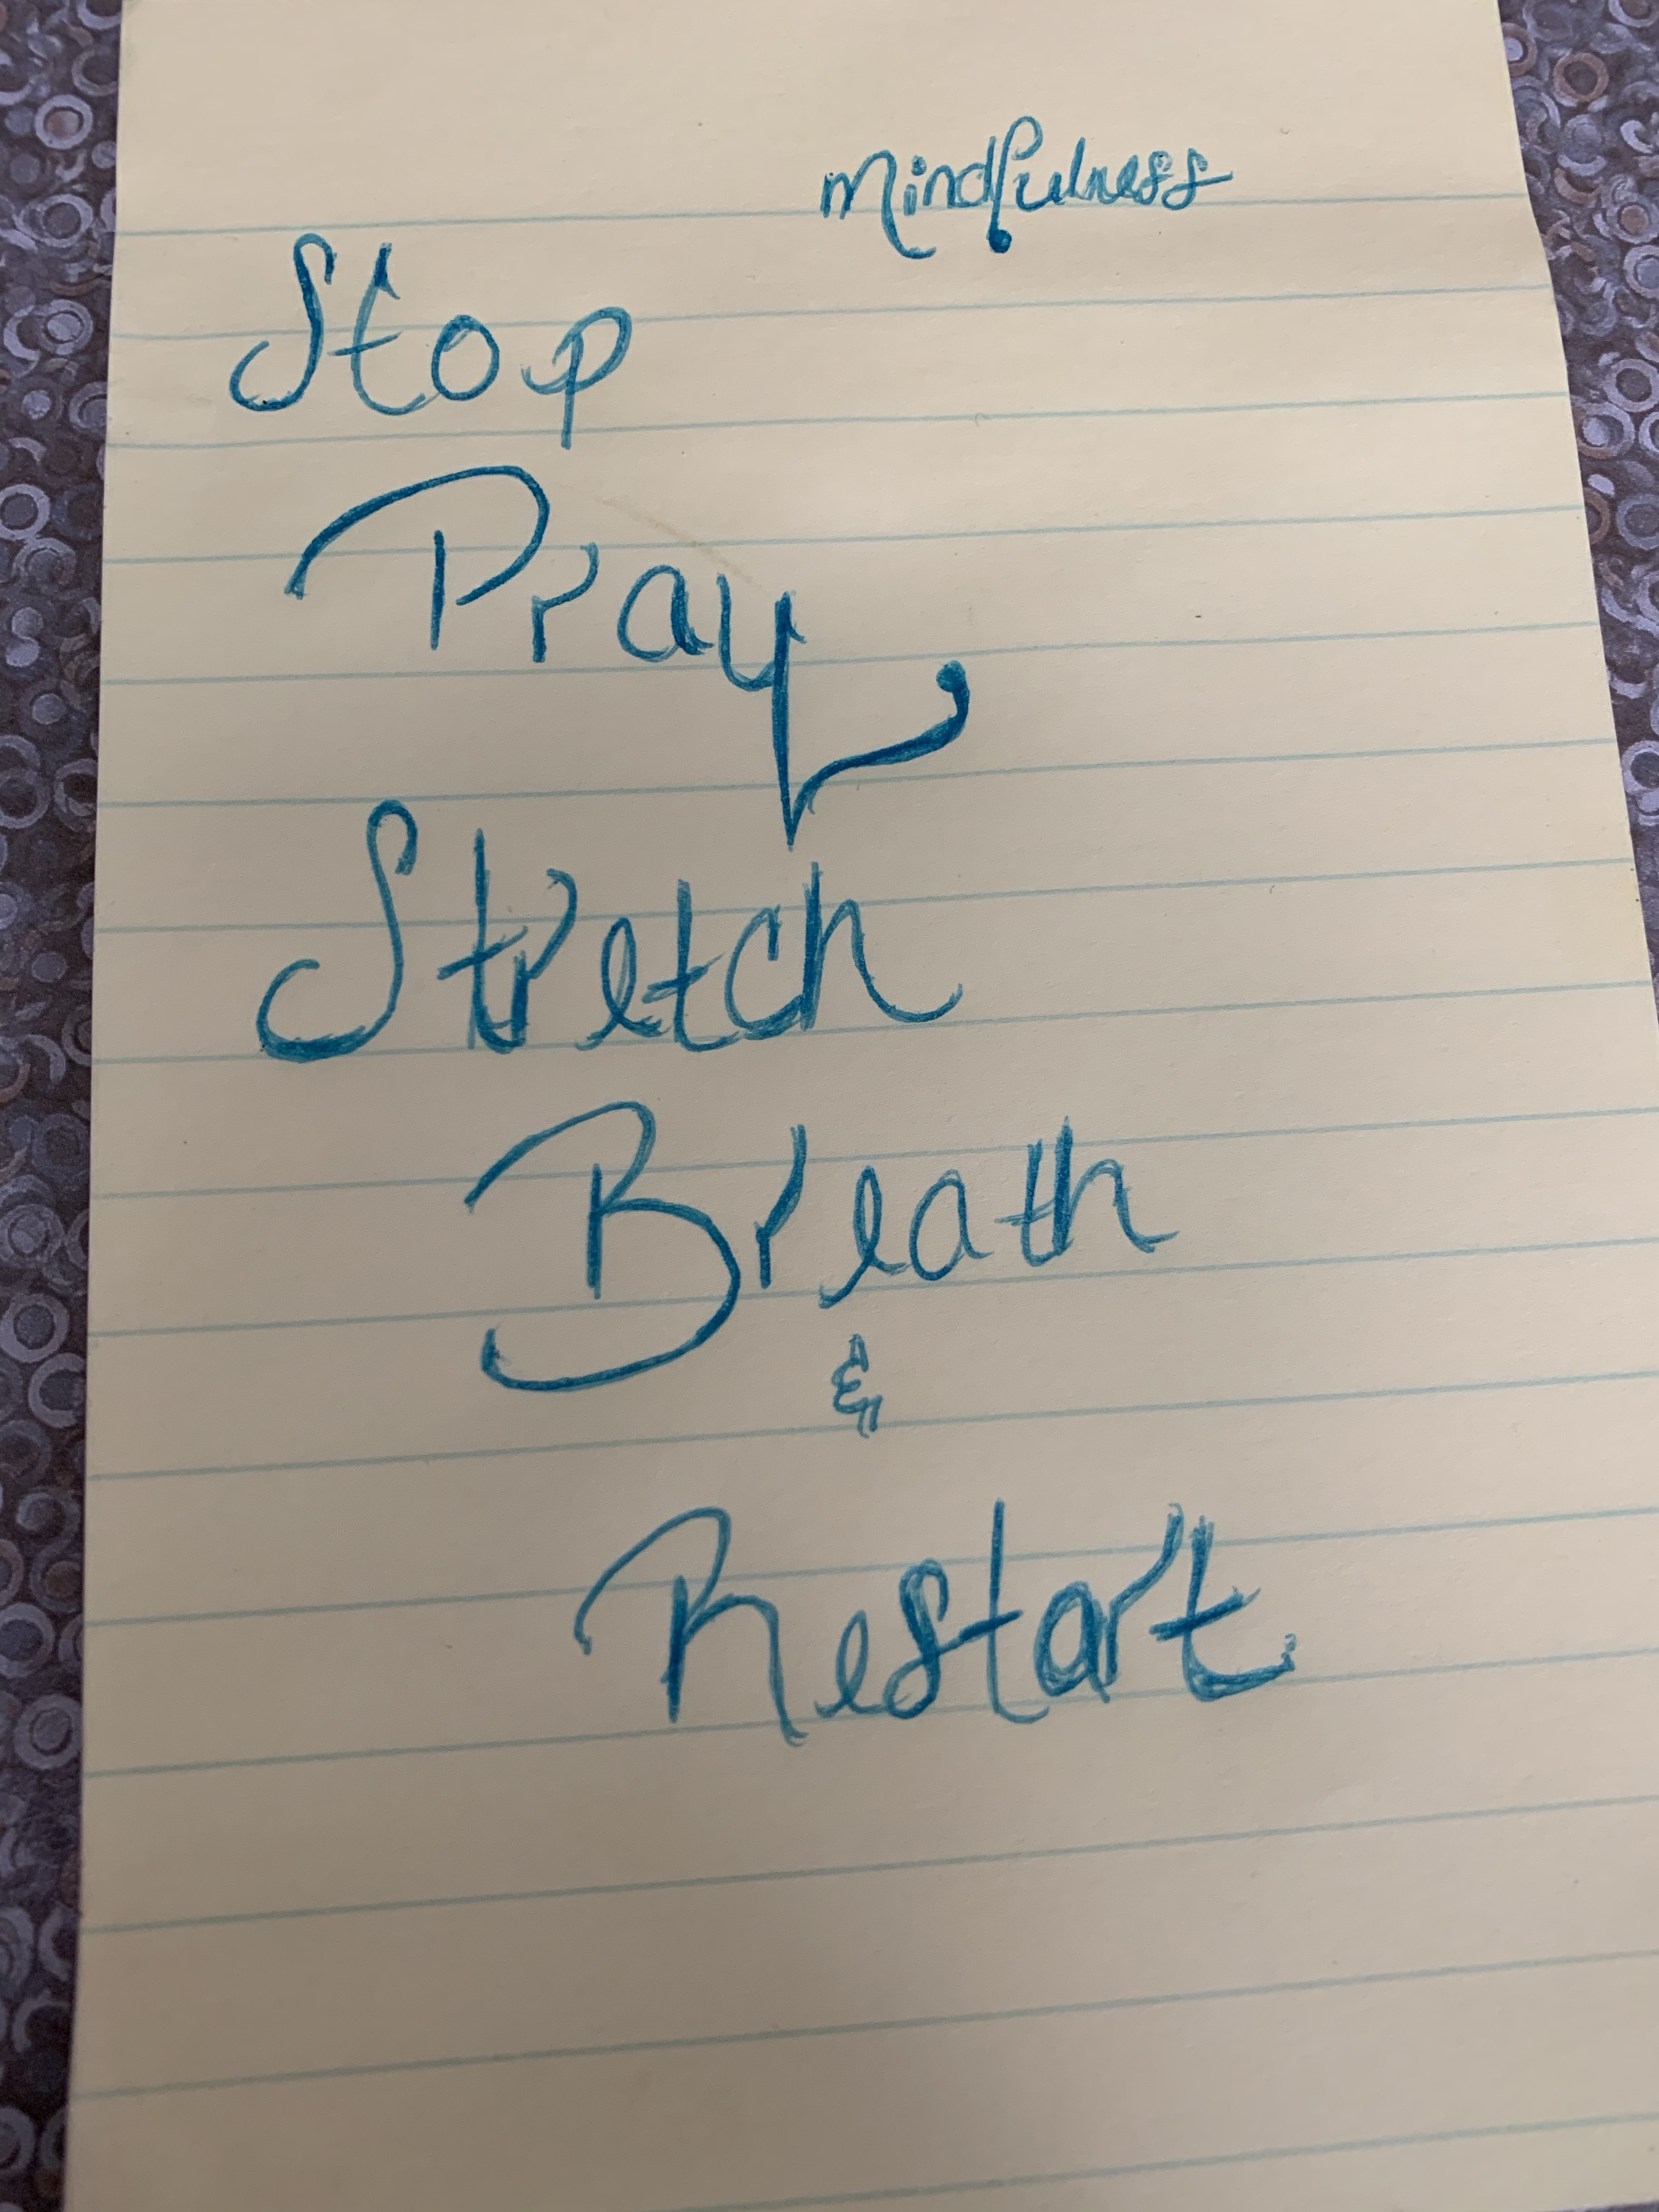 mindfulness
Stop
Pray
Stretch
Breath
&
Restart